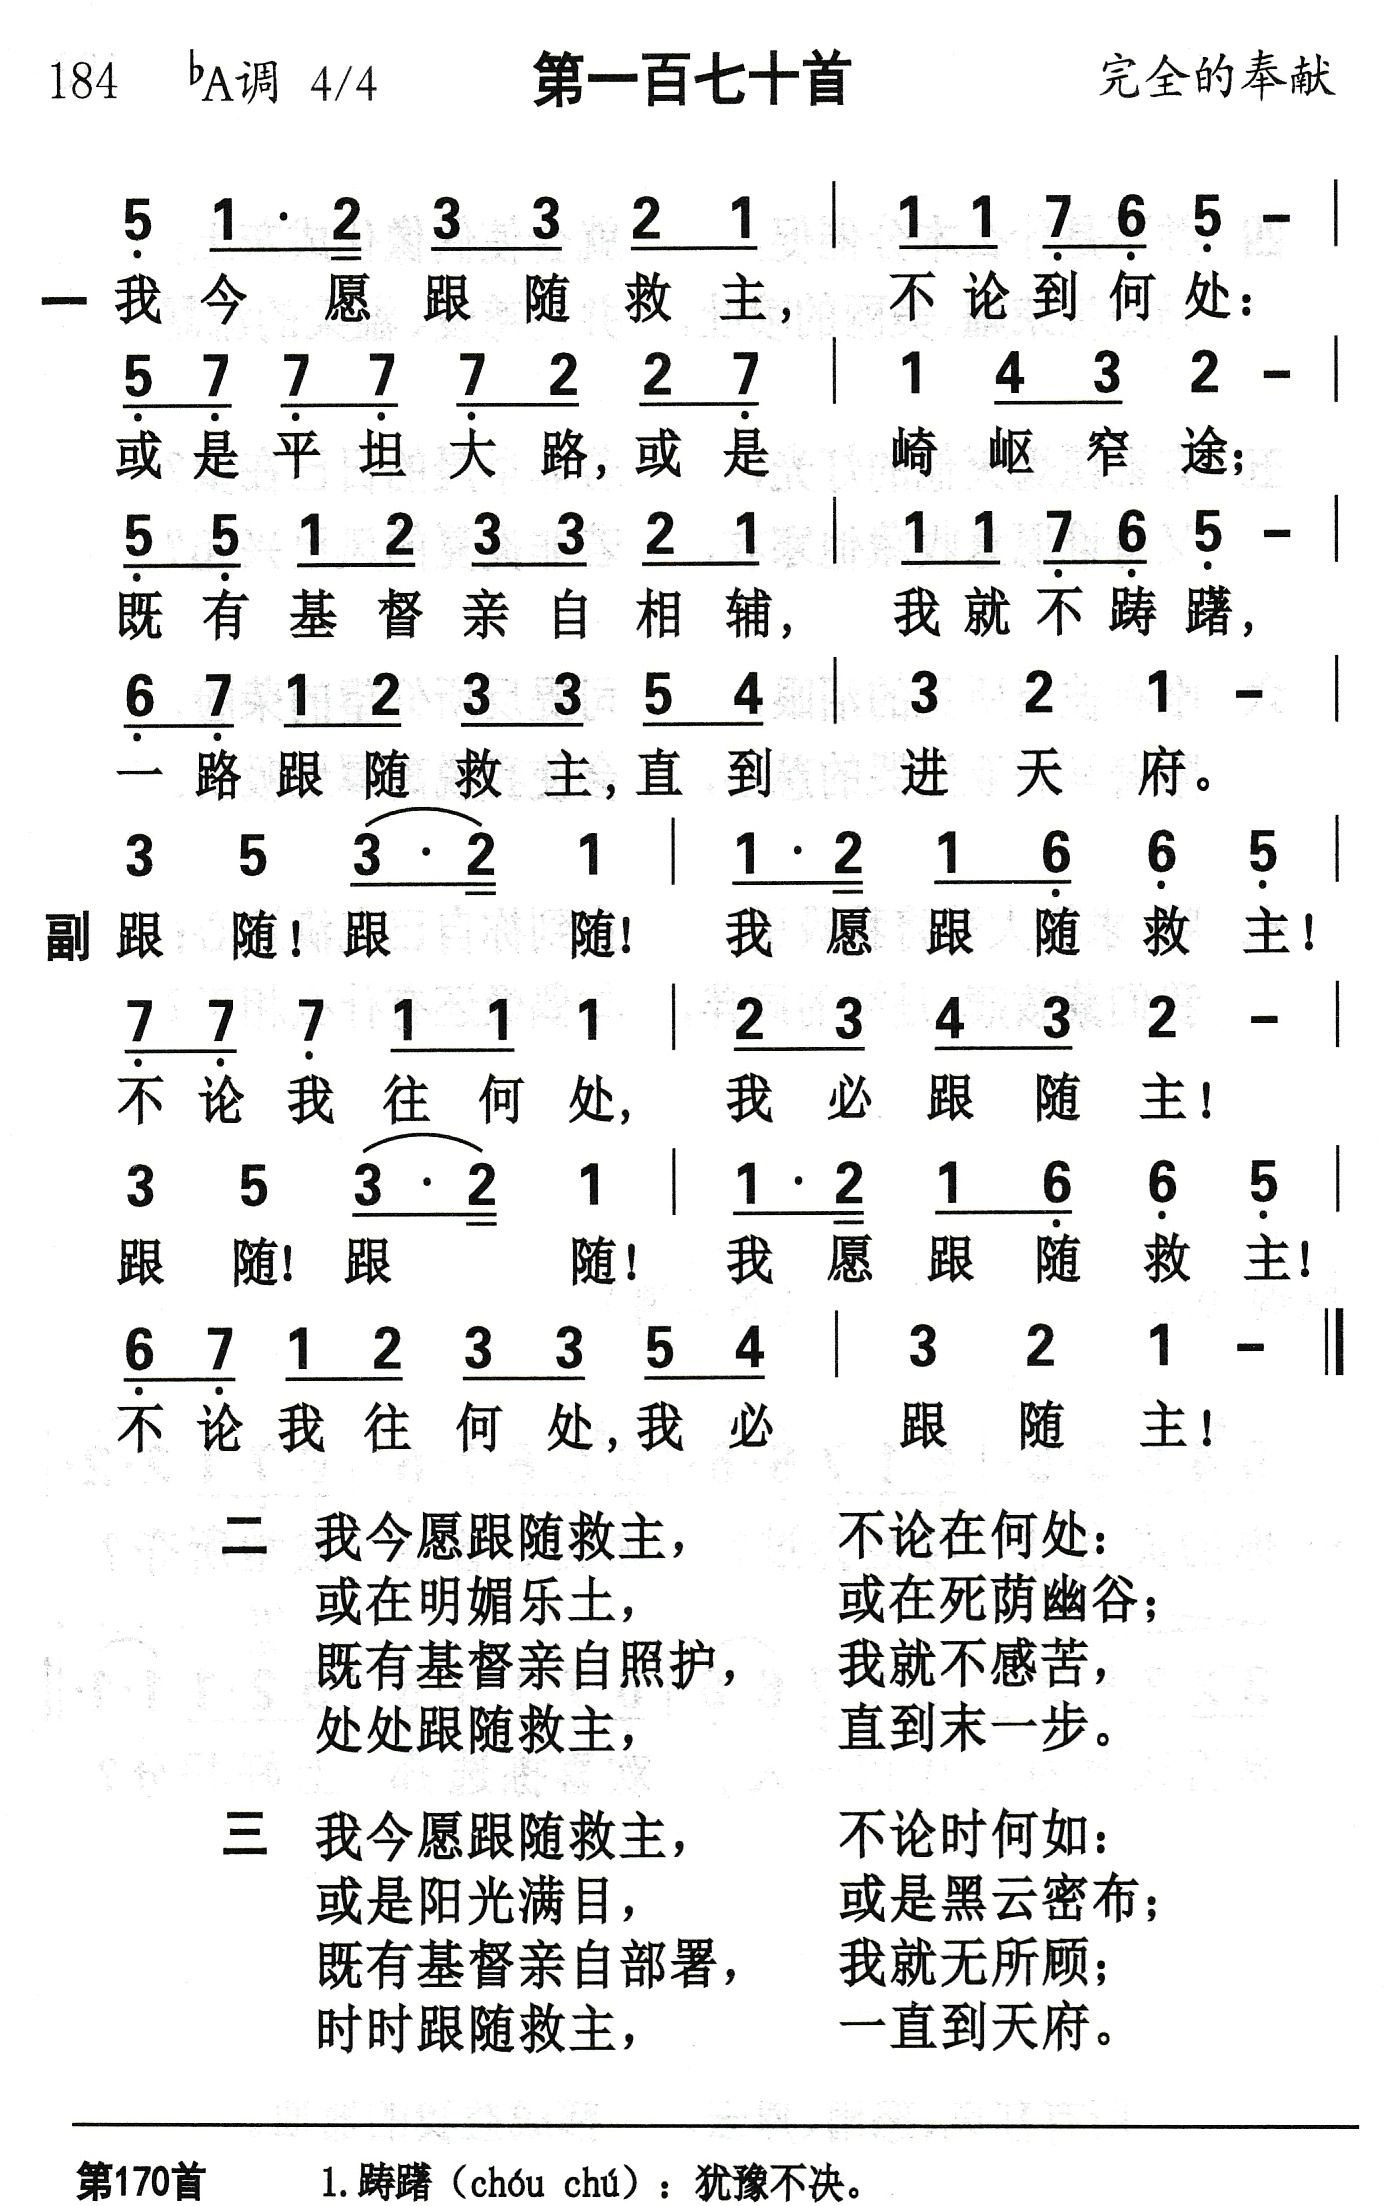 184 ♭A调 4/4 第一百七十首 完全的奉献
5̣ 1·2 3 3 2 1 | 1 1 7̣ 6̣ 5̣ – |
一 我今愿跟随救主, 不论到何处:
5̣ 7̣ 7̣ 7̣ 7̣ 2 2 7̣ | 1 4 3 2 – |
或是平坦大路,或是 崎岖窄途;
5̣ 5̣ 1 2 3 3 2 1 | 1 1 7̣ 6̣ 5̣ – |
既有基督亲自相辅, 我就不踌躇,
6̣ 7̣ 1 2 3 3 5 4 | 3 2 1 – |
一路跟随救主,直到 进天府。
3 5 3·2 1 | 1·2 1 6̣ 6̣ 5̣ |
副 跟随!跟随! 我愿跟随救主!
7̣ 7̣ 7̣ 1 1 1 | 2 3 4 3 2 – |
不论我往何处, 我必跟随主!
3 5 3·2 1 | 1·2 1 6̣ 6̣ 5̣ |
跟随!跟随! 我愿跟随救主!
6̣ 7̣ 1 2 3 3 5 4 | 3 2 1 – ‖
不论我往何处,我必 跟随主!
二 我今愿跟随救主, 不论在何处:
或在明媚乐土, 或在死荫幽谷;
既有基督亲自照护, 我就不感苦,
处处跟随救主, 直到末一步。
三 我今愿跟随救主, 不论时何如:
或是阳光满目, 或是黑云密布;
既有基督亲自部署, 我就无所顾;
时时跟随救主, 一直到天府。
第170首 1.踌躇（chóu chú）: 犹豫不决。